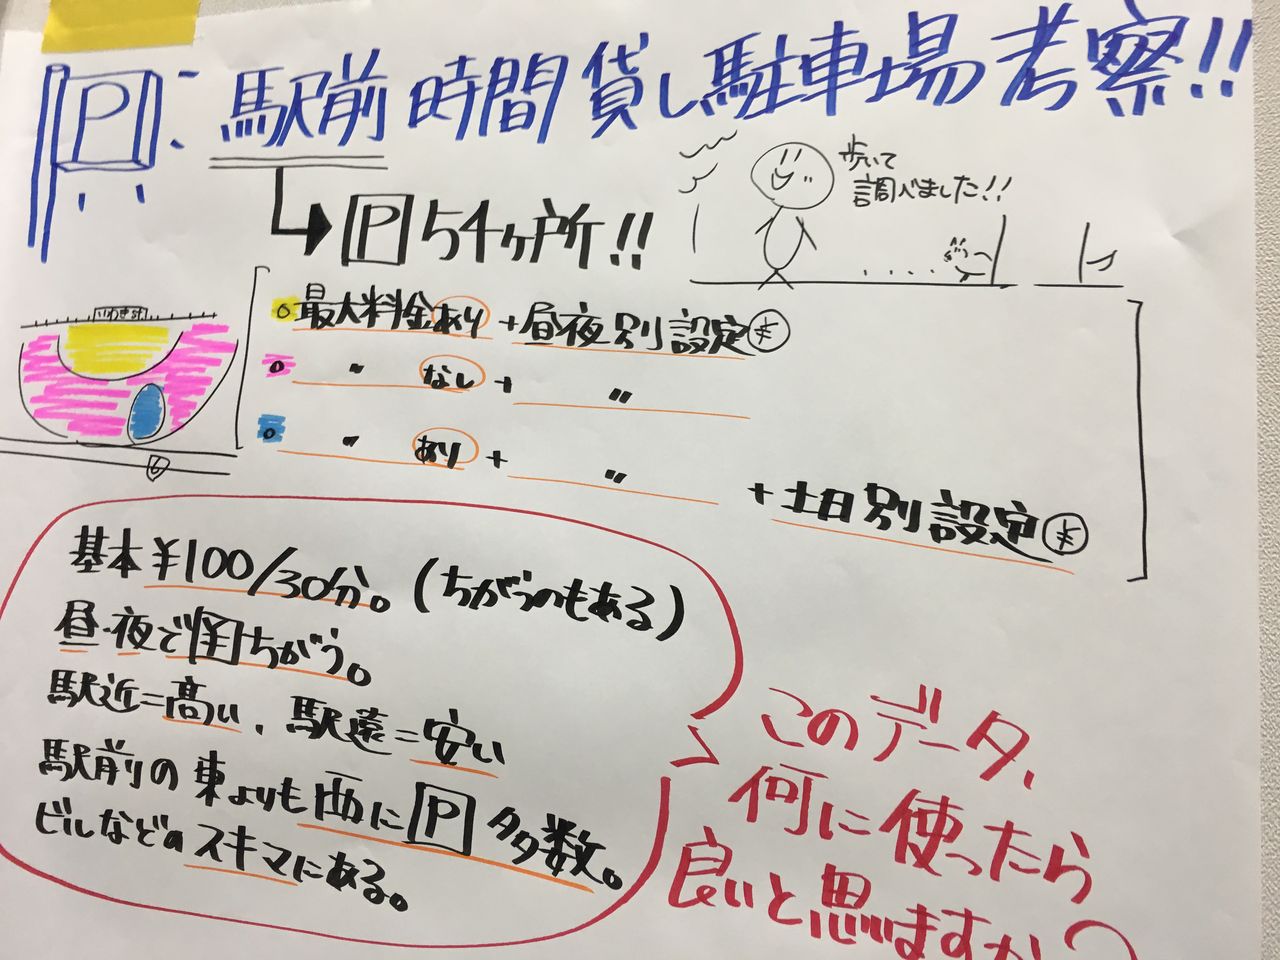 P : 駅前時間貸し駐車場考察!!
歩いて
調べました!!
→ P 54ヶ所!!
いわき駅
○最大料金あり + 昼夜別設定¥
○ 〃 なし + 〃
○ 〃 あり + 〃 + 土日別設定¥
6
基本¥100/30分。(ちがうのもある)
昼・夜で¥ちがう。
駅近=高い、駅遠=安い
駅前の東よりも西にP多数。
ビルなどのスキマにある。
このデータ、
何に使ったら
良いと思いますか?